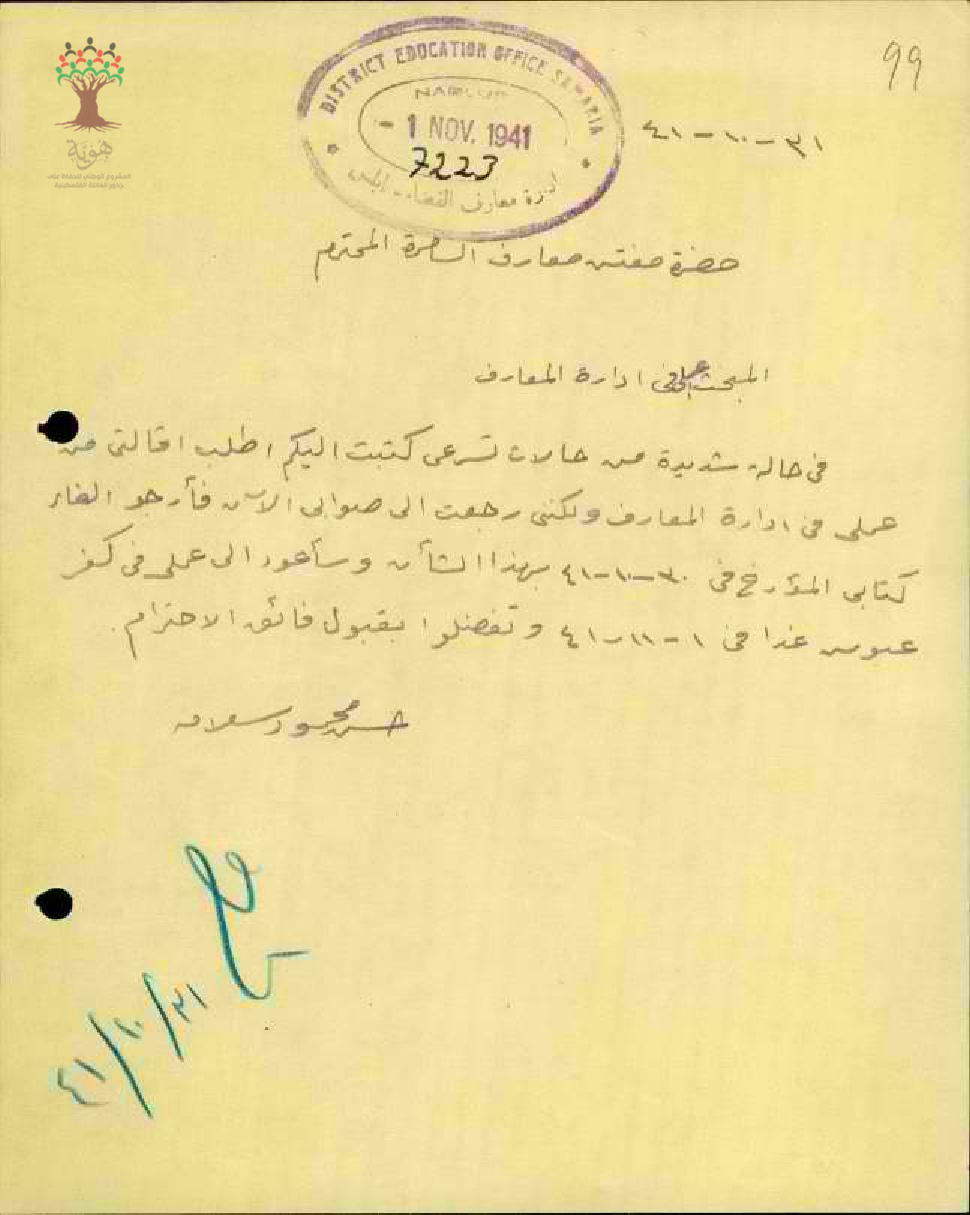 99
DISTRICT EDUCATION OFFICE SAMARIA
NABLUS
- 1 NOV. 1941
7223
ادارة معارف القضاء نابلس
هوية
المشروع الوطني للحفاظ على
جذور العائلة الفلسطينية
٣١ - ١٠ - ٤١
حضرة مفتش معارف السامرة المحترم
المبحث عملي في ادارة المعارف
في حالة شديدة من حالات تسرعي كتبت اليكم اطلب اقالتي من
عملي في ادارة المعارف ولكنني رجعت الى صوابي الآن فأرجو الغاء
كتابي المؤرخ في ٣٠-١٠-٤١ بهذا الشأن وسأعود الى عملي في كفر
عبوش غدا في ١-١١-٤١ وتفضلوا بقبول فائق الاحترام.
حسن محمود سلامه
٣١/١٠/٤١